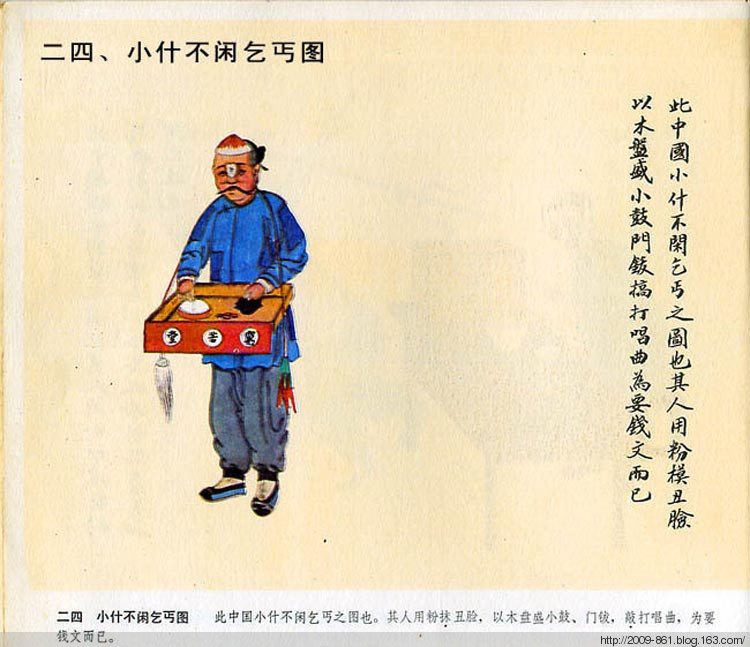 二四、小什不闲乞丐图
此中國小什不閑乞丐之圖也其人用粉模丑臉
以木盤盛小鼓門鈸搞打唱曲為要錢文而已
堂
二四 小什不闲乞丐图 此中国小什不闲乞丐之图也。其人用粉抹丑脸，以木盘盛小鼓、门钹，敲打唱曲，为要
钱文而已。
http://2009-861.blog.163.com/